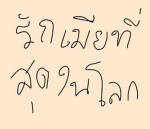 รักเมียที่
สุดในโลก